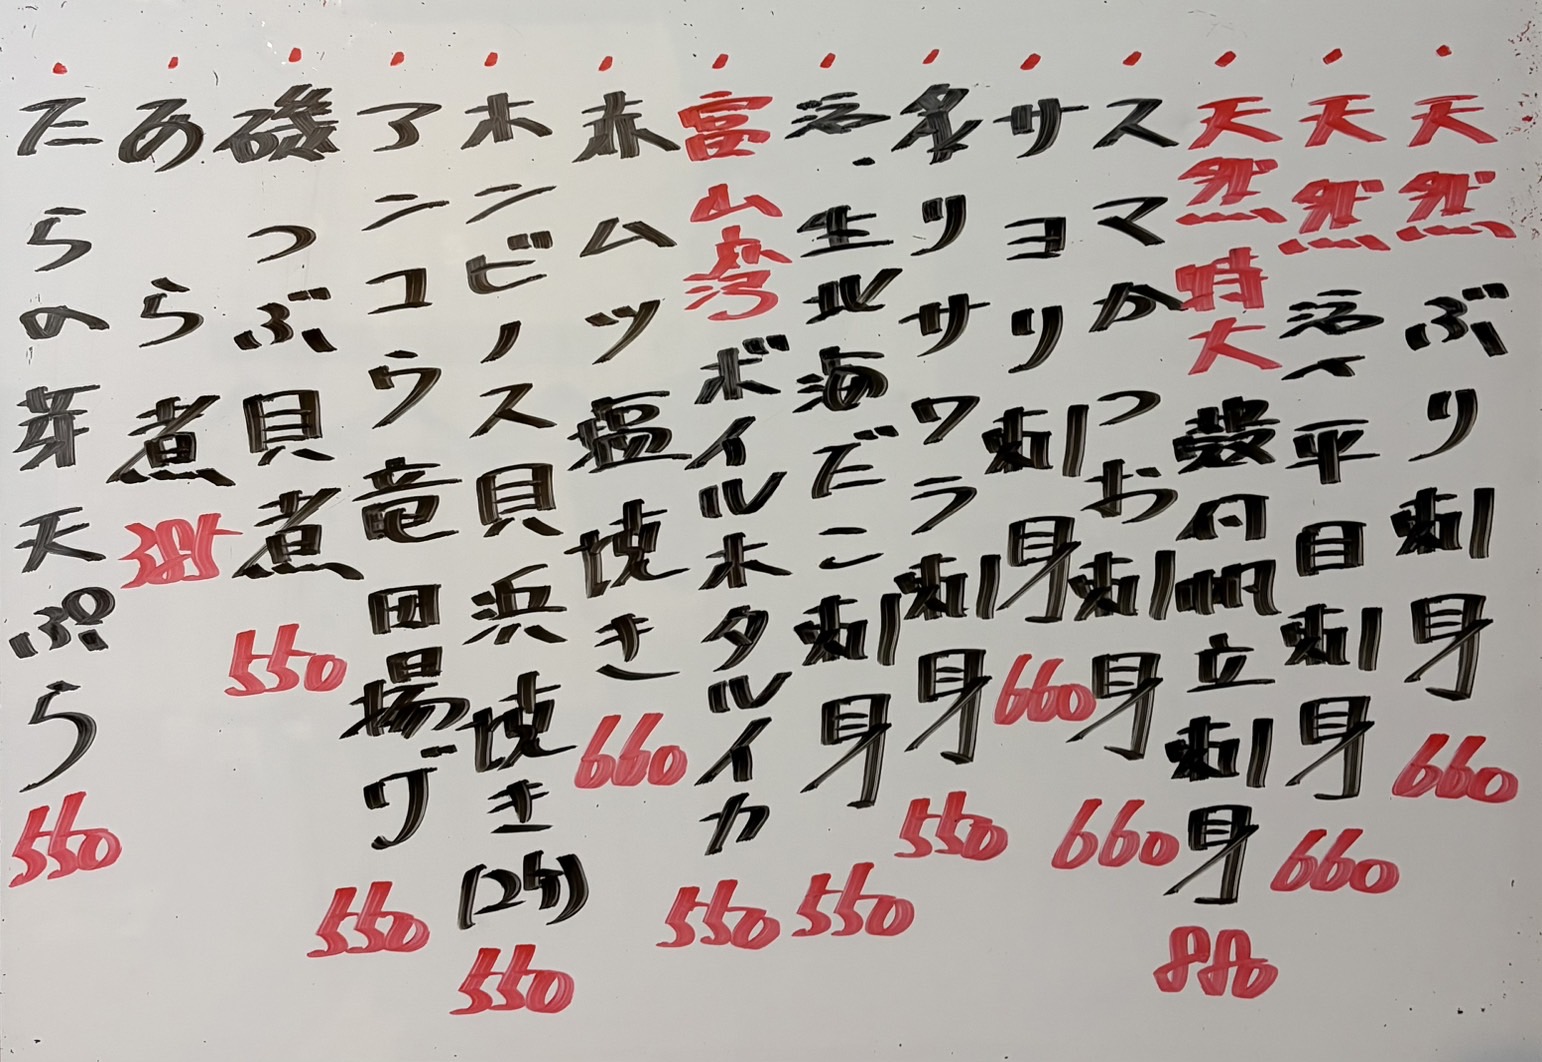 ・天然ぶり刺身 660
・天然活〆平目刺身 660
・天然特大殻付帆立刺身 880
・スマかつお刺身 660
・サヨリ刺身 660
・炙リサワラ刺身 550
・活・生北海だこ刺身 550
・富山湾ボイルホタルイカ 550
・赤ムツ塩焼き 660
・ホンビノス貝浜焼き(2ケ) 550
・アンコウ竜田揚げ 550
・磯つぶ貝煮 550
・あら煮 385
・たらの芽天ぷら 550